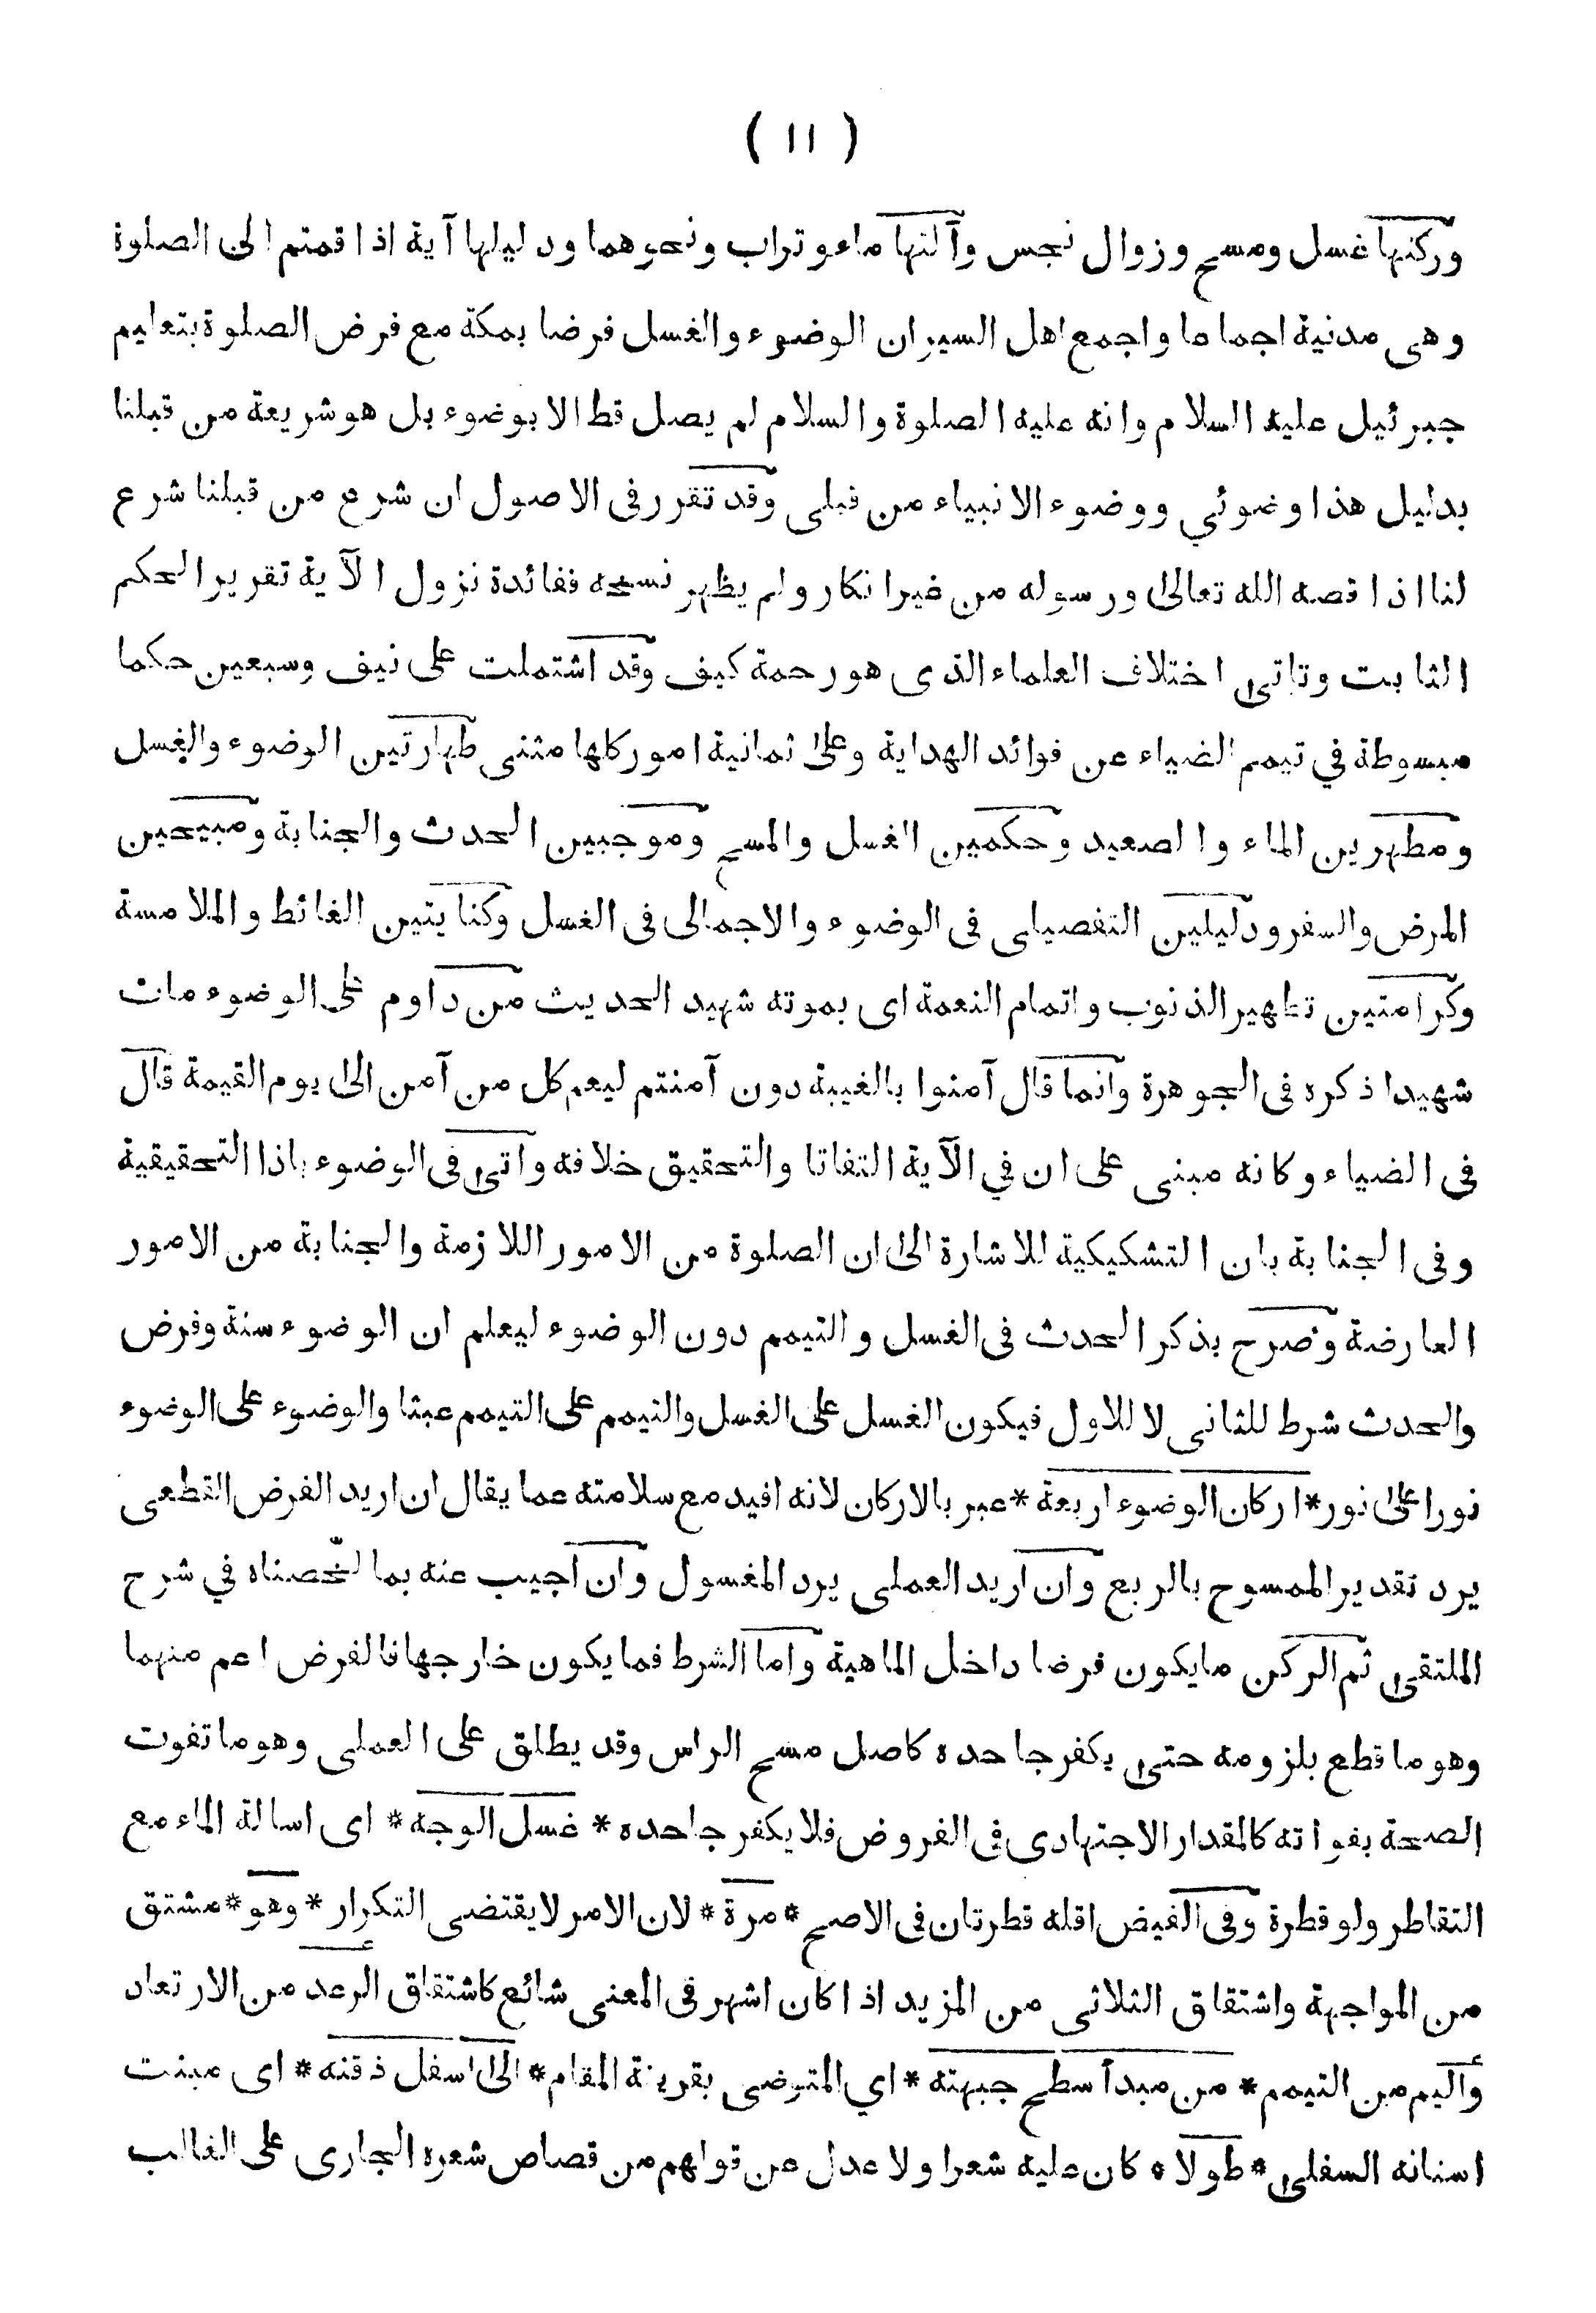 ( ١١ )
وركنها غسل ومسح وزوال نجس وآلتها ماء وتراب ونحوهما ودليلها آية اذا قمتم الى الصلوة
وهى مدنية اجماعا واجمع اهل السير ان الوضوء والغسل فرضا بمكة مع فرض الصلوة بتعليم
جبرئيل عليه السلام وانه عليه الصلوة والسلام لم يصل قط الا بوضوء بل هو شريعة من قبلنا
بدليل هذا وضوئي ووضوء الانبياء من قبلى وقد تقرر فى الاصول ان شرع من قبلنا شرع
لنا اذا قصه الله تعالى ورسوله من غير انكار ولم يظهر نسخه ففائدة نزول الآية تقرير الحكم
الثابت وتاتى اختلاف العلماء الذى هو رحمة كيف وقد اشتملت على نيف وسبعين حكما
مبسوطة في تيمم الضياء عن فوائد الهداية وعلى ثمانية امور كلها مثنى طهارتين الوضوء والغسل
ومطهرين الماء والصعيد وحكمين الغسل والمسح وموجبين الحدث والجنابة ومبيحين
المرض والسفر ودليلين التفصيلى فى الوضوء والاجمالى فى الغسل وكنايتين الغائط والملامسة
وكرامتين تطهير الذنوب واتمام النعمة اى بموته شهيد الحديث من داوم على الوضوء مات
شهيدا ذكره فى الجوهرة وانما قال آمنوا بالغيبة دون آمنتم ليعم كل من آمن الى يوم القيمة قال
فى الضياء وكانه مبنى على ان في الآية التفاتا والتحقيق خلافه واتى فى الوضوء باذا التحقيقية
وفى الجنابة بان التشكيكية للاشارة الى ان الصلوة من الامور اللازمة والجنابة من الامور
العارضة وصرح بذكر الحدث فى الغسل والتيمم دون الوضوء ليعلم ان الوضوء سنة وفرض
والحدث شرط للثانى لا للاول فيكون الغسل على الغسل والتيمم على التيمم عبثا والوضوء على الوضوء
نورا على نور * اركان الوضوء اربعة * عبر بالاركان لانه افيد مع سلامته عما يقال ان اريد الفرض القطعى
يرد تقدير الممسوح بالربع وان اريد العملى يرد المغسول وان اجيب عنه بما لخّصناه في شرح
الملتقى ثم الركن مايكون فرضا داخل الماهية واما الشرط فما يكون خارجها فالفرض اعم منهما
وهو ما قطع بلزومه حتى يكفر جاحده كاصل مسح الراس وقد يطلق على العملى وهو ما تفوت
الصحة بفواته كالمقدار الاجتهادى فى الفروض فلا يكفر جاحده * غسل الوجه * اى اسالة الماء مع
التقاطر ولو قطرة وفى الفيض اقله قطرتان فى الاصح * مرة * لان الامر لا يقتضى التكرار * وهو * مشتق
من المواجهة واشتقاق الثلاثى من المزيد اذا كان اشهر فى المعنى شائع كاشتقاق الرعد من الارتعاد
وأليم من التيمم * من مبدأ سطح جبهته * اي المتوضى بقرينة المقام * الى اسفل ذقنه * اى مبنت
اسنانه السفلى * طولا * كان عليه شعرا ولا عدل عن قولهم من قصاص شعره الجارى على الغالب